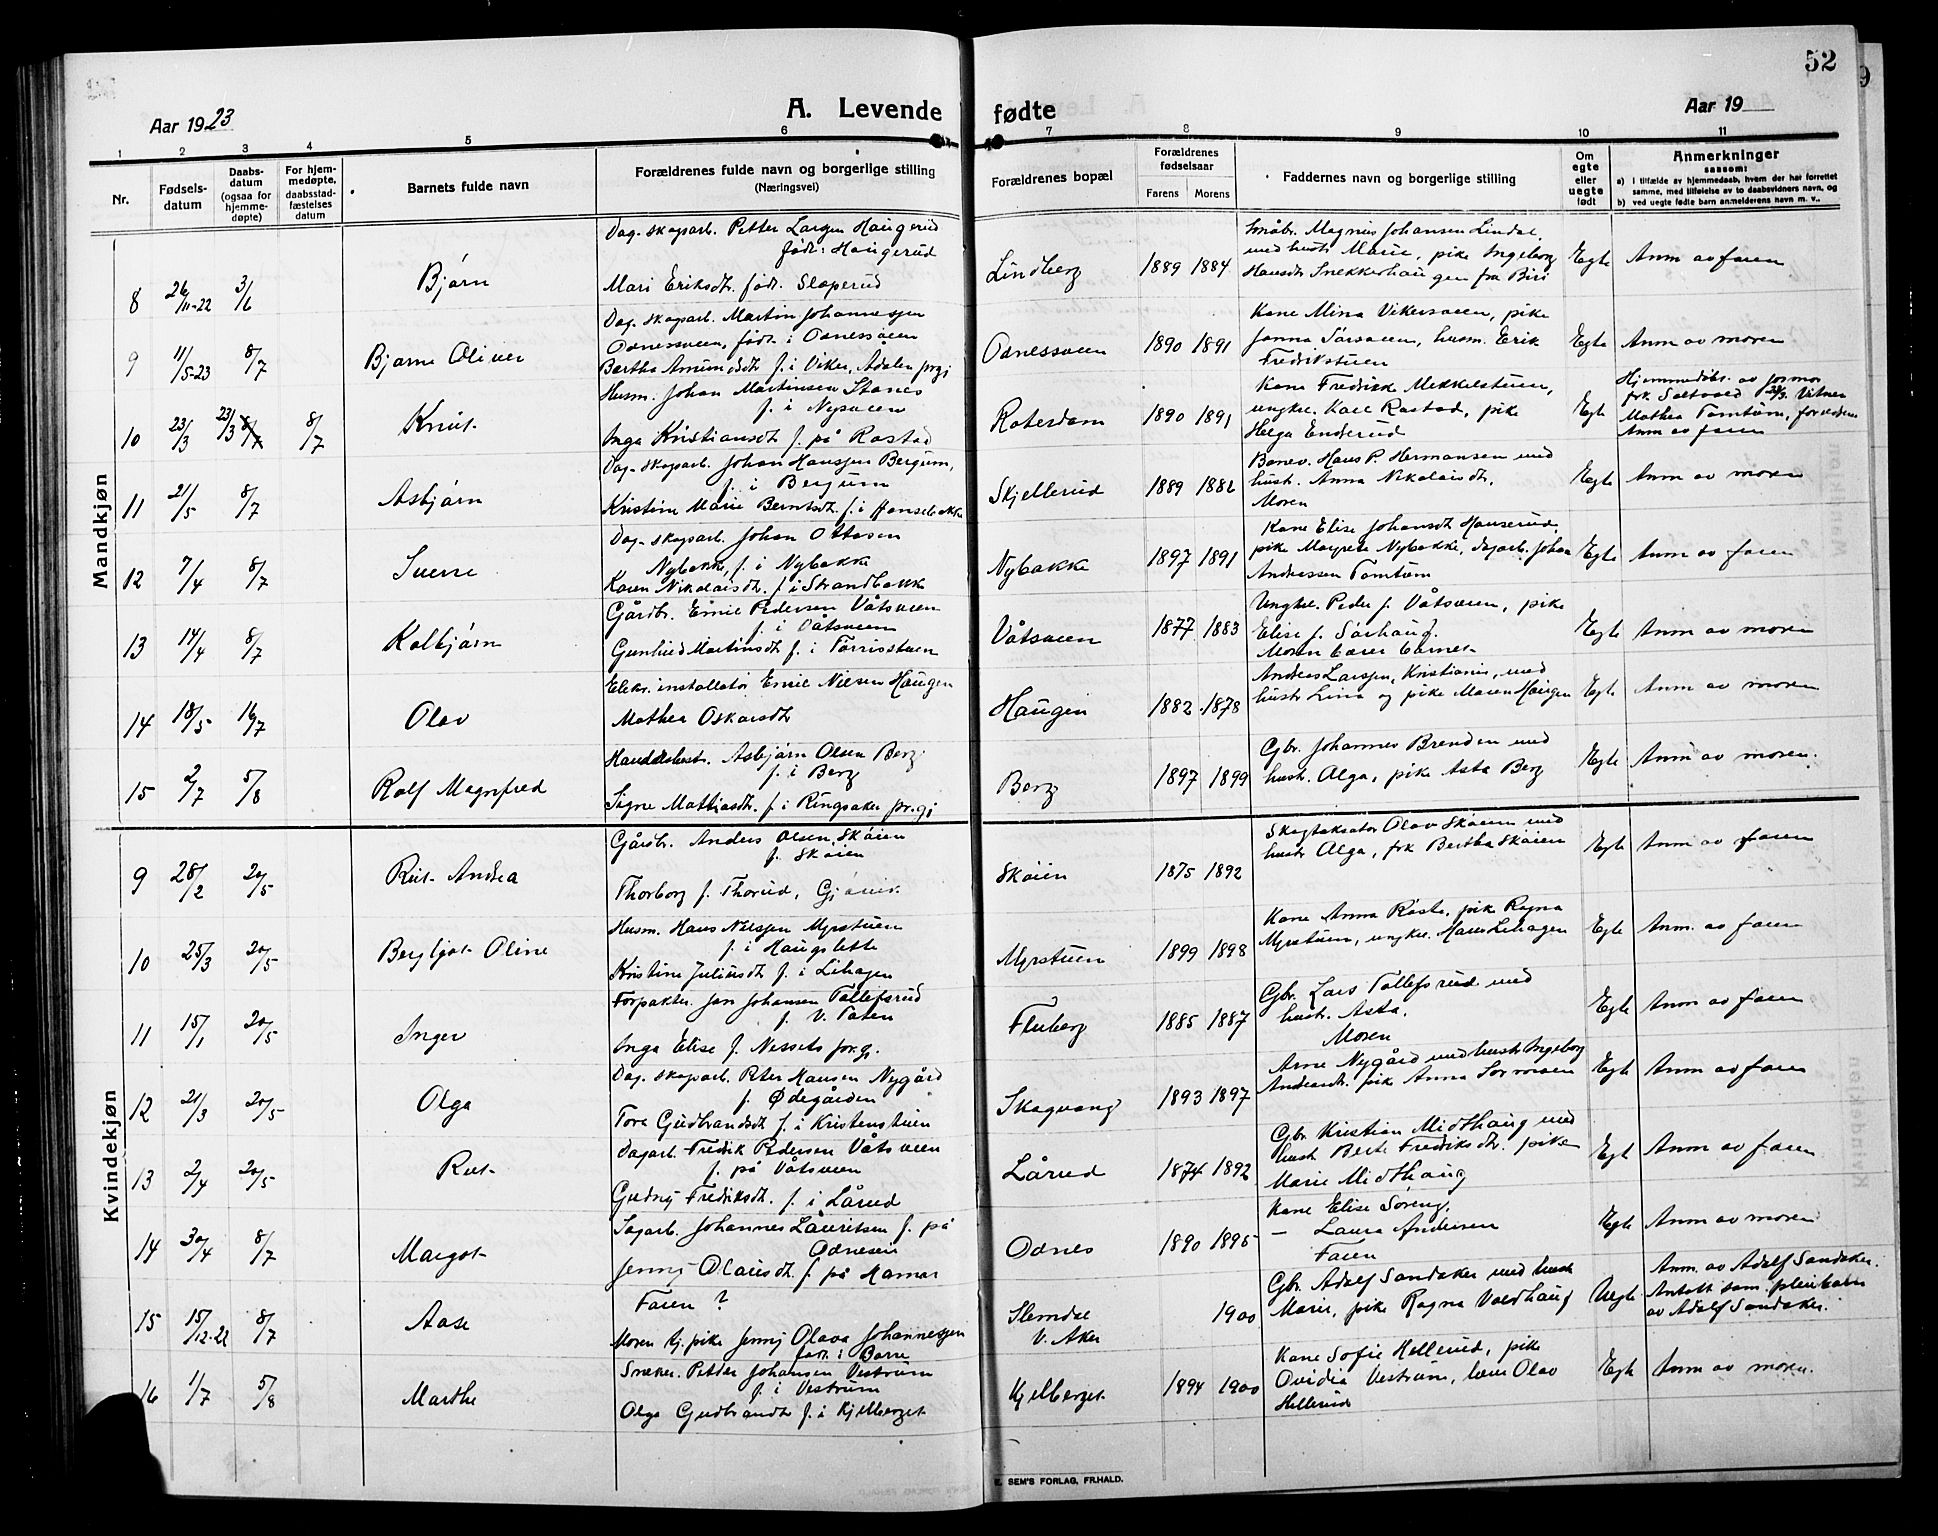 52
Aar 1923
A. Levende fødte
Aar 19
1 2 3 4 5 6 7 8 9 10 11
Nr.
Fødsels-
datum
Daabs-
datum
(ogsaa for
hjemme-
døpte)
For hjem-
medøpte,
daabsstad-
fæstelses
datum
Barnets fulde navn
Forældrenes fulde navn og borgerlige stilling
(Næringsvei)
Forældrenes bopæl
Forældrenes
fødselsaar
Farens Morens
Faddernes navn og borgerlige stilling
Om
egte
eller
uegte
født
Anmerkninger
saasom:
a) i tilfælde av hjemmedaab, hvem der har forrettet
samme, med tilføielse av to daabsvidners navn, og
b) ved uegte fødte barn anmelderens navn m. v..
Mandkjøn
8 26/11-22 3/6 Bjørn
Dag. skogarb. Petter Larsen Haugerud
født: Haugerud
Mari Eriksdt. født. Sloperud
Lindberg 1889 1884
Småbr. Magnus Johansen Lindal,
med hustr Marie, pike Ingeborg
Hansdt Snekkerhaugen fra Biri
Egte Anm av faren
9 11/5-23 8/7 Bjarne Oliver
Dag. skogarb. Martin Johannessen
Odnessveen, født i Odnessveen
Bertha Amundsdt f. i Viker, Ådalen prgj
Odnessveen 1890 1891
Kone Mina Vikersveen, pike
Janna Sørsveen, husm. Erik
Fredrikstuen
Egte Anm av moren
10 23/3 23/3 8/7 8/7 Knut
Husm. Johan Martinsen Stanes
f. i Nysveen
Inga Kristiansdt f. på Rostad
Roterdam 1890 1891
Kone Fredrikk Mekkelstuen,
ungkr. Karl Rostad, pike
Helga Enderud
Egte Hjemmedøbt av jormor
frk. Saltveed 23/3. Vitner
Mathea Tomtum, forældrene
Anm av faren
11 21/5 8/7 Asbjørn
Dag- skogarb. Johan Hanssen Bergum,
f. i Bergum
Kristine Marie Berntsdt. f. i Hanslebakke
Skjellerud 1889 1882
Banev. Hans P. Hermansen med
hustr. Anna Nikolaisdt.
Moren
Egte Anm av moren
12 7/4 8/7 Sverre
Dag- skogarb. Johan Ottosen
Nybakke, f. i Nybakke
Karen Nikolaisdt. f. i Strandbakke
Nybakke 1897 1891
Kone Elise Johansdt Hauserud,
pike Margrete Nybakke, dagarb. Johan
Andreassen Tomtum
Egte Anm av faren
13 14/4 8/7 Kolbjørn
Gårdbr. Emil Pedersen Våtsveen
f. i Våtsveen
Gunhild Martinsdt f. i Tørrisstuen
Våtsveen 1877 1883
Ungkr. Peder f. Våtsveen, pike
Elise f. Sørhaug.
Moren bærer barnet
Egte Anm av moren
14 18/5 16/7 Olav
Elekr. installatør Emil Nilsen Haugen
Mathea Oskarsdt
Haugen 1882 1878
Andreas Larssen, Kristiania, med
hustr Lina og pike Maren Haugen
Egte Anm av moren
15 2/7 5/8 Rolf Magnfred
Handelsbest. Asbjørn Olsen Berg
f. i Berg
Signe Mathiasdt. f. i Ringsaker pr.gj
Berg 1897 1899
Gbr. Johannes Brenden med
hustr. Alga, pike Asta Berg
Egte Anm av moren.
Kvindekjøn
9 28/2 20/5 Rut Andrea
Gårdbr. Anders Olsen Skøien
f. Skøien
Thorborg f. Thorud, Gjøvik
Skøien 1875 1892
Skogtaksator Olav Skøien med
hustr Alga, frk Bertha Skøien
Egte Anm. av faren
10 25/3 20/5 Bergljot Oline
Husm. Hans Nilssen Myrstuen
f. i Haugslette
Kristine Juliusdt f. i Lihagen
Myrstuen 1899 1898
Kone Anna Røste, pike Ragna
Myrstuen, ungkr. Hans Lihagen
Egte Anm. av faren
11 15/1 20/5 Inger
Forpakter. Jon Johansen Tollefsrud
f. V. Toten
Inga Elise f. Nessets pr.gj.
Fluberg 1885 1887
Gbr. Lars Tollefsrud med
hustr. Asta.
Moren
Egte Anm av faren
12 21/3 20/5 Olga
Dag. skogarb. Peter Hansen Nygård
f. Ødegården
Tora Gudbrandsdt f. i Kristenstuen
Skogvang 1893 1897
Arne Nygård med hustr Ingeborg
Andersdt. pik Anna Sormoen
Egte Anm av faren
13 2/4 20/5 Rut
Dagarb. Fredrik Pedersen Våtsveen
f. på Våtsveen
Gudny Fredriksdt. f. i Lårud
Lårud 1874 1892
Gbr Kristian Midthaug med
hustr Berte Fredriksdt. pike
Marie Midthaug
Egte Anm av faren
14 30/4 8/7 Margot
Sagarb. Johannes Lauritsen f. på
Odnesen
Jenny Olausdt. f. på Hamar
Odnes 1890 1895
Kone Elise Søreng.
— Laura Andersen
Faren
Egte Anm av moren
15 15/12-22 8/7 Aase
Faren ?
Moren tj. pike Jenny Olava Johannessen
født i Borre
Slemdal
V. Aker
1900
Gbr. Adolf Sandaker med hustr
Marie, pike Ragna Voldhaug
Uegte Anm. av Adolf Sandaker.
Antatt som pleiebarn
av Adolf Sandaker.
16 1/7 5/8 Marthe
Snæker. Petter Johansen Vestrum
f. i Vestrum
Olga Gudbrandt f. i Kjelberget
Kjelberget 1894 1900
Kone Sofie Hellerud, pike
Ovidia Vestrum, lærer Olav
Hellerud
Egte Anm av moren.
E. SEM'S FORLAG, FR.HALD.